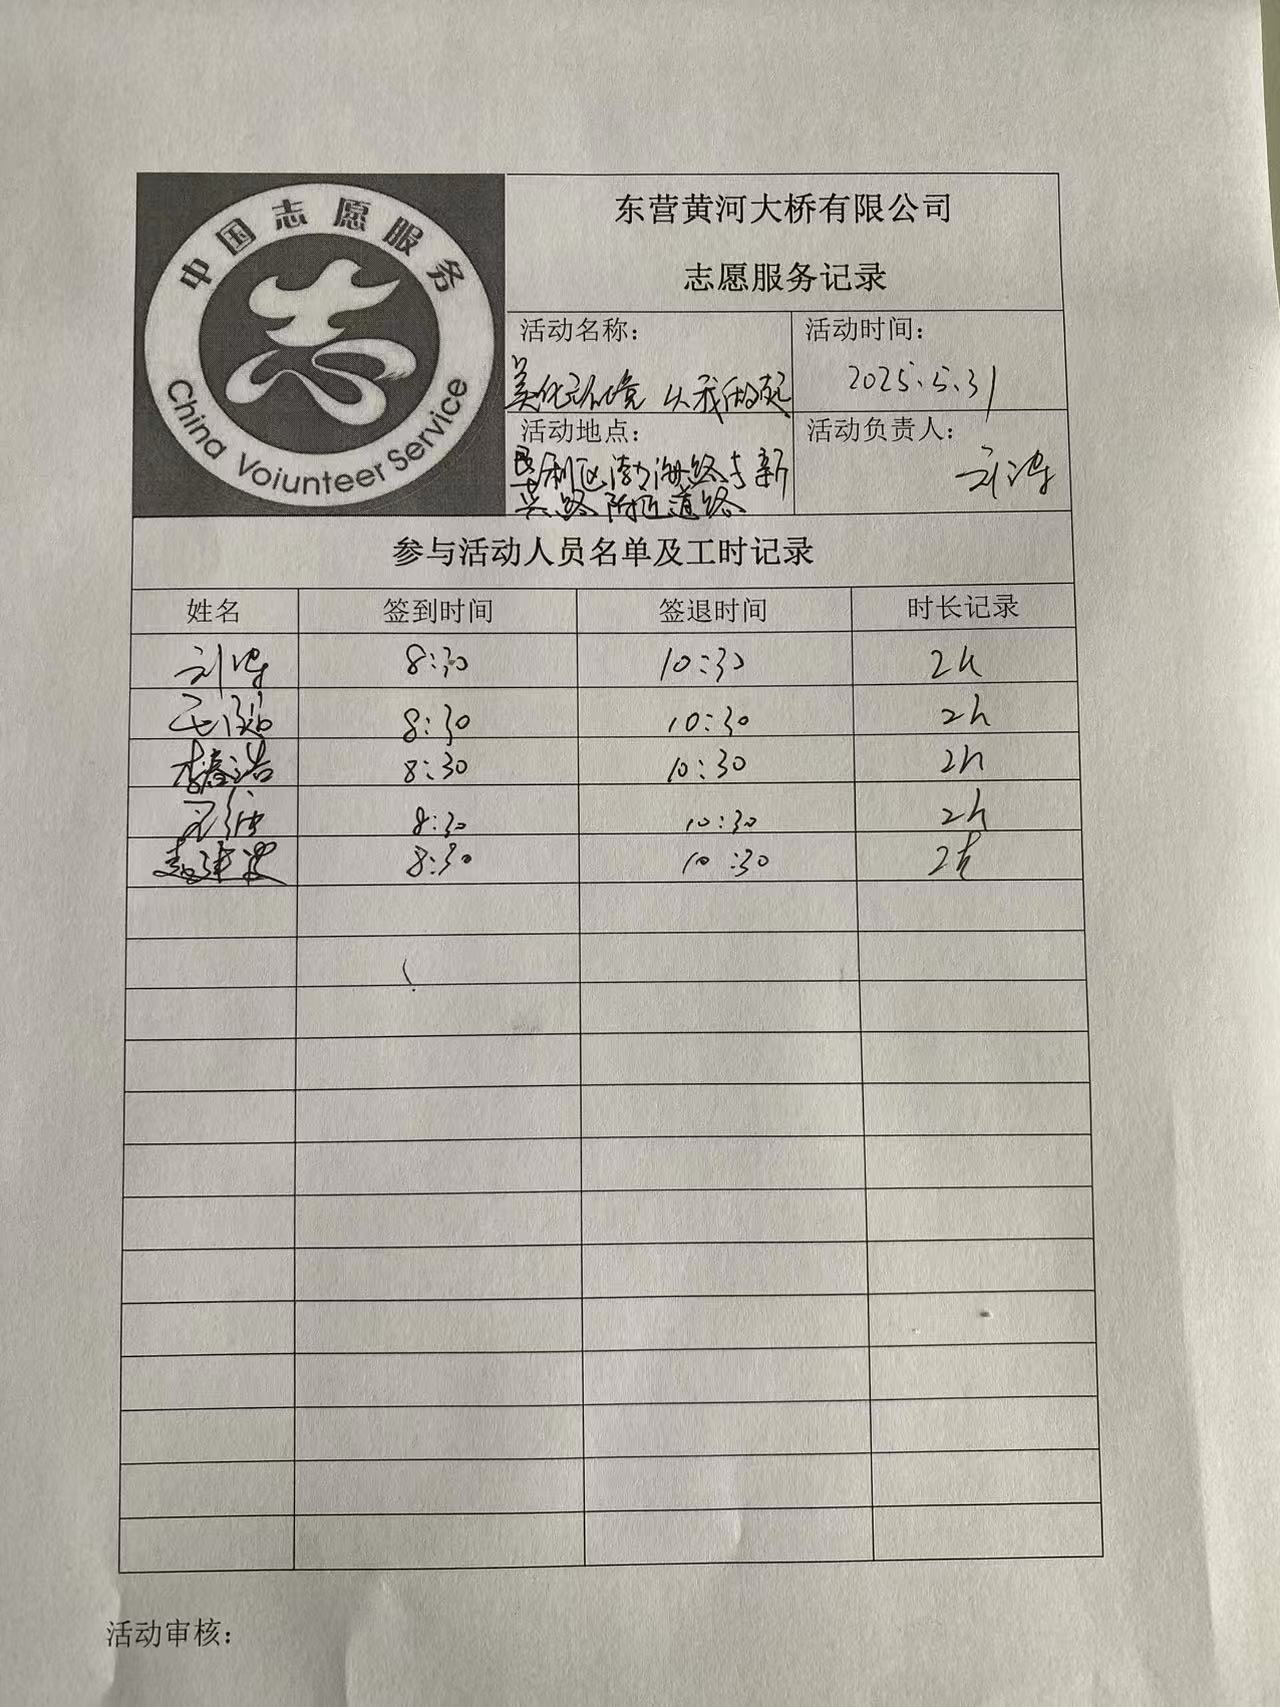 中国志愿服务
China Voiunteer Service
东营黄河大桥有限公司
志愿服务记录
活动名称：
美化环境 从我做起
活动时间：
2025.5.31
活动地点：
垦利区渤海路与新
兴路附近道路
活动负责人：
刘涛
参与活动人员名单及工时记录
姓名 签到时间 签退时间 时长记录
刘涛 8:30 10:30 2h
8:30 10:30 2h
李春浩 8:30 10:30 2h
8:30 10:30 2h
8:30 10:30 2h
活动审核：